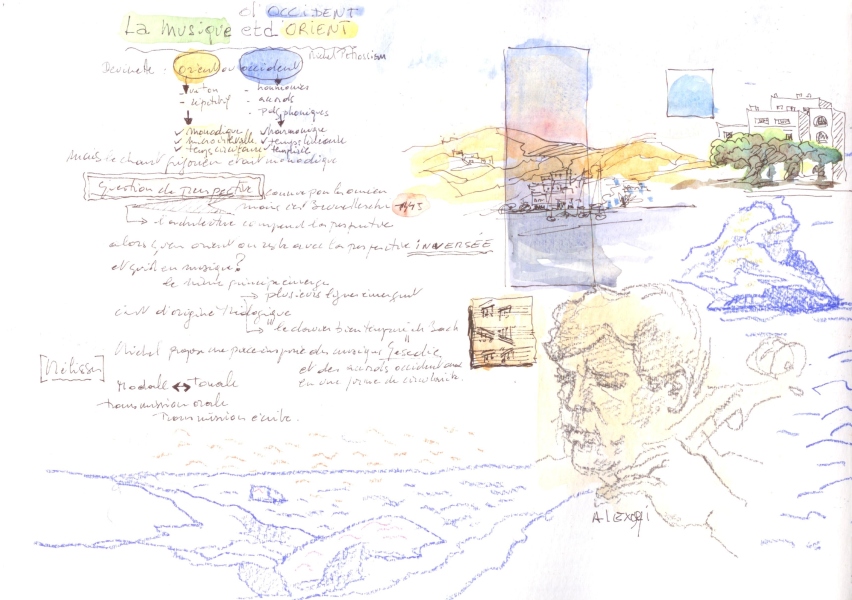 d'OCCIDENT
La Musique et d'ORIENT
orient ou occident
- un ton
- répétitif
- harmonies
- accords
- polyphoniques
✓ monodique
✓ temps circulaire
✓ harmonique
✓ tempérée
Mais le chant grégorien étant monodique
Question de perspective connue par les romains
mais c'est Brunelleschi
l'architecture comprend la perspective
alors qu'en orient on reste avec la perspective INVERSÉE
et qu'il en musique?
le même principe émerge
plusieurs lignes émergent
c'est d'origine théologique
"le clavier bien tempéré" de Bach
Michel propose une pièce inspirée du musique
et des accords occidentaux
en une forme de circularité.
Métissu
Modale ↔ Tonale
transmission orale
Transmission écrite.
Alexopi